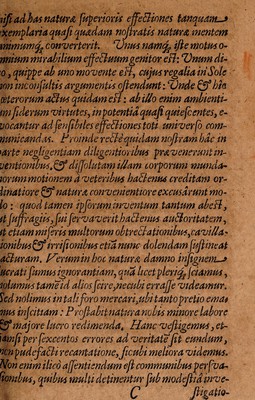 nisi ad has naturæ superioris effectiones tanquam
exemplaria quasi quædam nostratis naturæ mentem
animumq́; converterit. Unus namq́; iste motus o-
mnium mirabilium effectuum genitor est: Unum di-
co, quippe ab uno movente est, cujus regalia in Sole
non inconsultis argumentis ostendunt: Unde & hic
cæterorum actus quidam est: ab illo enim ambienti-
um siderum virtutes, in potentiâ quasi quiescentes, e-
vocantur ad sensibiles effectiones toti universo com-
municandas. Proinde rectè quidam nostram hâc in
parte negligentam diligentioribus prævenerunt in-
ventionibus, & dissolutam illam corporum munda-
norum motionem à veteribus hactenus creditam or-
dinatiore & naturæ convenientiore excusârunt mo-
do: quod tamen ipsorum inventum tantum abest,
ut suffragiis, sui servaverit hactenus auctoritatem,
ut etiam miseris multorum obtrectationibus, cavilla-
tionibus & irrisionibus etiā nunc dolendam sustineat
jacturam. Verum in hoc naturæ damno insignem
lucrati sumus ignorantiam, quâ licet plerīq́; sciamus,
nolumus tamē id alios scire, necubi errasse videamur.
Sed nolimus in tali foro mercari, ubi tanto pretio emat-
mus inscitiam: Prostabit natura nobis minore labore
& majore lucro redimenda. Hanc vestigemus, et-
iamsi per sexcentos errores ad veritatē sit eundum,
non pudefacti recantatione, sicubi meliora videmus.
Non enim ilicò assentiendum est communibus persva-
sionibus, quibus multi detinentur sub modestiâ inve-
C stigatio-